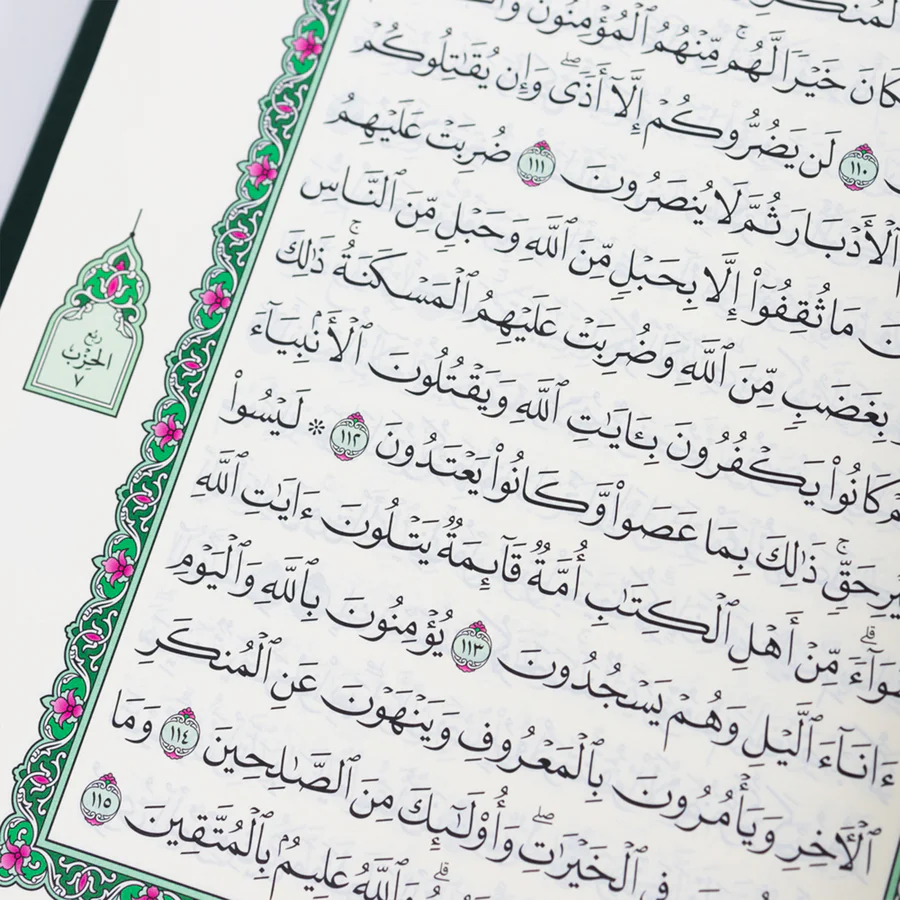 كَانَ خَيْرًا لَّهُمۚ مِّنْهُمُ ٱلْمُؤْمِنُونَ
١١٠ لَن يَضُرُّوكُمْ إِلَّآ أَذًىۖ وَإِن يُقَٰتِلُوكُمْ
ٱلْأَدْبَارَ ثُمَّ لَا يُنصَرُونَ ١١١ ضُرِبَتْ عَلَيْهِمُ
مَا ثُقِفُوٓاْ إِلَّا بِحَبْلٍ مِّنَ ٱللَّهِ وَحَبْلٍ مِّنَ ٱلنَّاسِ
بِغَضَبٍ مِّنَ ٱللَّهِ وَضُرِبَتْ عَلَيْهِمُ ٱلْمَسْكَنَةُۚ ذَٰلِكَ
كَانُواْ يَكْفُرُونَ بِـَٔايَٰتِ ٱللَّهِ وَيَقْتُلُونَ ٱلْأَنۢبِيَآءَ
حَقٍّۚ ذَٰلِكَ بِمَا عَصَواْ وَّكَانُواْ يَعْتَدُونَ ١١٢ * لَيْسُواْ
مِّنْ أَهْلِ ٱلْكِتَٰبِ أُمَّةٌ قَآئِمَةٌ يَتْلُونَ ءَايَٰتِ ٱللَّهِ
ءَانَآءَ ٱلَّيْلِ وَهُمْ يَسْجُدُونَ ١١٣ يُؤْمِنُونَ بِٱللَّهِ وَٱلْيَوْمِ
ٱلْأٓخِرِ وَيَأْمُرُونَ بِٱلْمَعْرُوفِ وَيَنْهَوْنَ عَنِ ٱلْمُنكَرِ
فِى ٱلْخَيْرَٰتِۖ وَأُوْلَٰٓئِكَ مِنَ ٱلصَّٰلِحِينَ ١١٤ وَمَا
وَٱللَّهُ عَلِيمٌۢ بِٱلْمُتَّقِينَ ١١٥
ربع
الحزب
٧